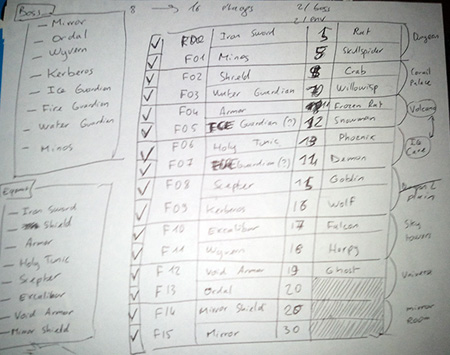 Boss
— Mirror
— Ordal
— Wyvern
— Kerberos
— Ice Guardian
— Fire Guardian
— Water Guardian
— Minos
— Iron Sword
— Shield
— Armor
— Holy Tunic
— Scepter
— Excalibur
— Void Armor
— Mirror Shield
8 → 16
2/boss
✓ Iron Sword 5 Rat
✓ F01 Minos Skullspider
✓ F02 Shield 8 Crab
✓ F03 Water Guardian Willowisp
✓ F04 Armor Frozen Rat
✓ F05 Guardian (?) 12 Snowman
✓ F06 Holy Tunic 13 Phoenix
✓ F07 Guardian (?) 14 Demon
✓ F08 Scepter 15 Goblin
✓ F09 Kerberos 16 Wolf
✓ F10 Excalibur 17 Falcon
✓ F11 Wyvern 18 Harpy
✓ F12 Void Armor 19 Ghost
✓ F13 Ordal 20
✓ F14 Mirror Shield
✓ F15 Mirror 30
Dungeon
Palace
Volcano
Ice
Cave
Sky
towers
Universe
mirror
Room